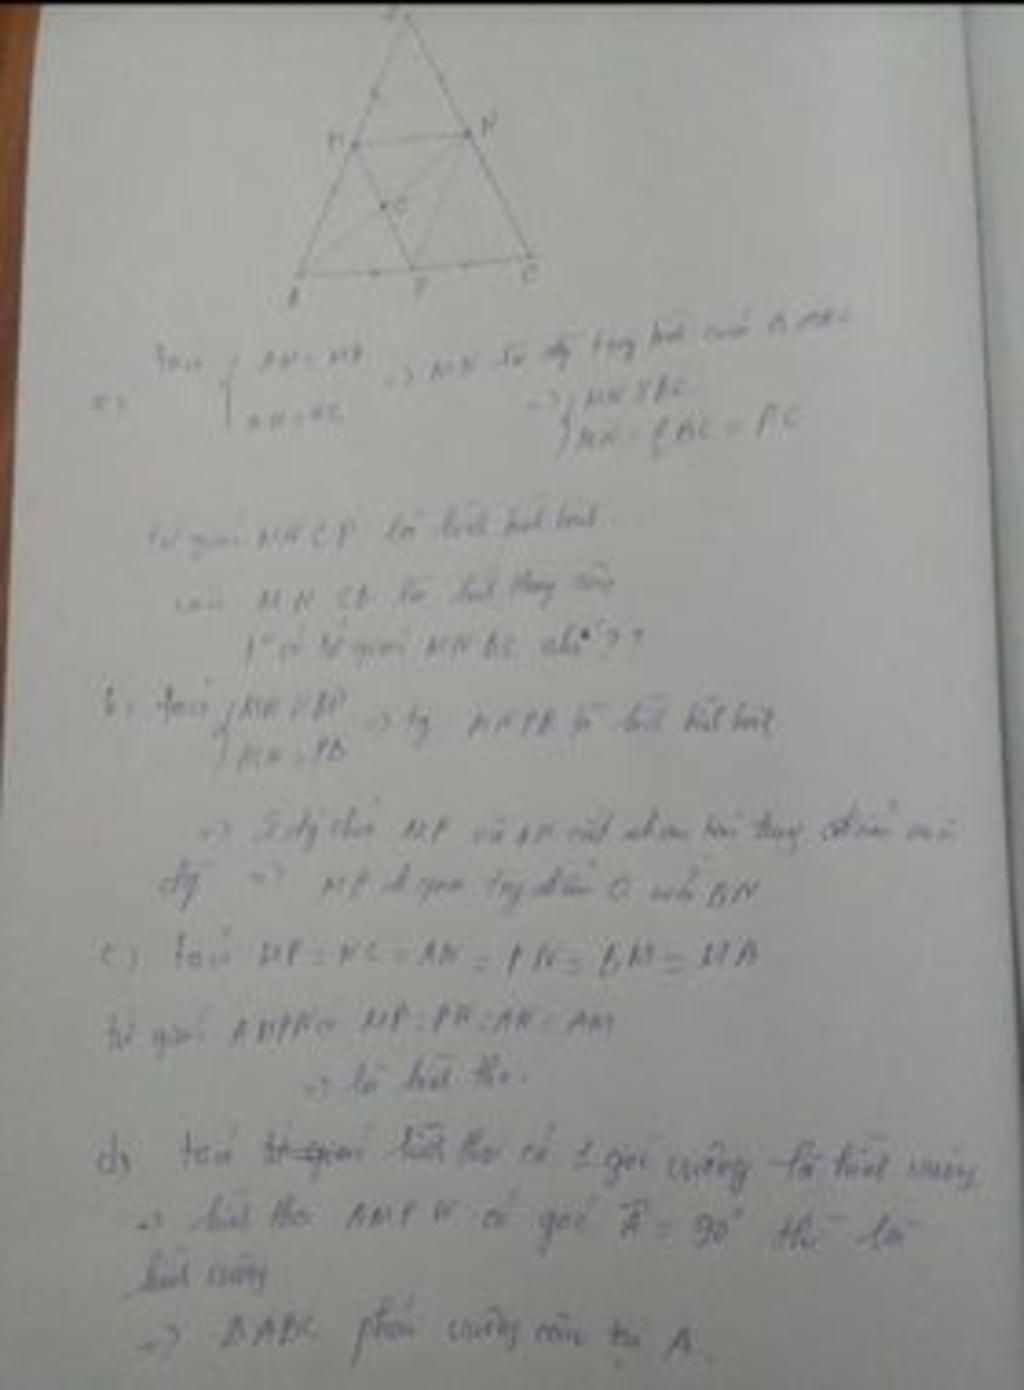 M
N
O
B
P
C
a) Ta có { AM = MB => MN là đg trung bình của Δ ABC
AN = NC
=> { MN // BC
MN = 1/2 BC = PC
tứ giác MNCP là hình bình hành
MNCB là hình thang cân
tứ giác MNBC
b) Ta có { MN // BP => tg MNPB là hình bình hành
MN = PB
=> MP và BN cắt nhau tại trung điểm mỗi
đg => MP đi qua trg điểm O của BN
c) Ta có MP = NC = AN = PN = BM = MA
tứ giác AMPN có MP = PN = AN = AM
=> là hình thoi.
d) ta có tứ giác hình thoi có 1 góc vuông là hình vuông
=> hình thoi AMPN có góc A = 90° thì là
hình vuông
=> Δ ABC phải vuông cân tại A.